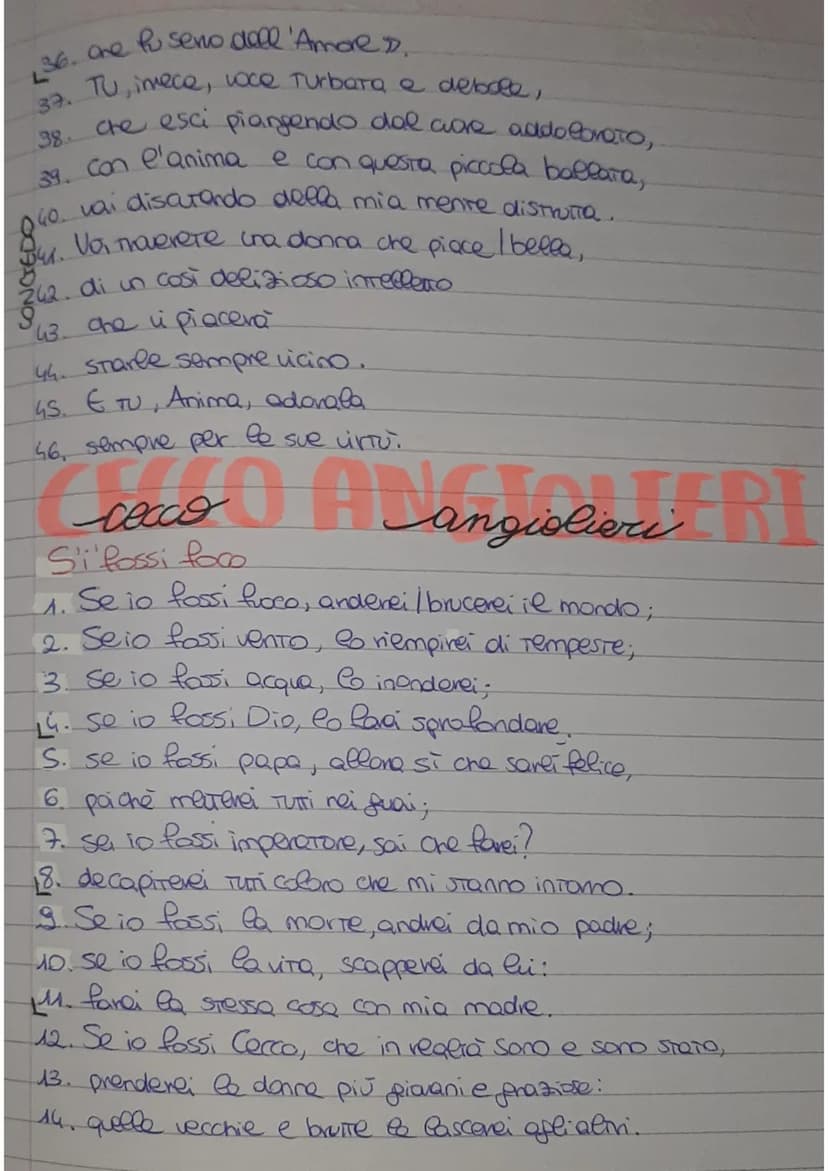 36. che fu servo dell'Amore D.
37. Tu, invece, voce turbata e debole,
38. che esci piangendo dal cuore addolorato,
39. con l'anima e con questa piccola ballata,
40. vai disatando della mia mente distrutta.
41. Voi troverete una donna che piace/bella,
42. di un così delizioso intelletto
43. che vi piacerà
44. starle sempre vicino.
45. E tu, Anima, adorala
46. sempre per le sue virtù.
CONGEDO
CECCO ANGIOLIERI
cecco angiolieri
S'i' fossi foco
1. Se io fossi fuoco, arderei/brucerei il mondo;
2. Se io fossi vento, lo riempirei di tempeste;
3. Se io fossi acqua, lo inonderei;
4. se io fossi Dio, lo farei sprofondare.
5. se io fossi papa, allora sì che sarei felice,
6. poiché metterei tutti nei guai;
7. se io fossi imperatore, sai che farei?
8. decapiterei tutti coloro che mi stanno intorno.
9. Se io fossi la morte, andrei da mio padre;
10. se io fossi la vita, scapperei da lui:
11. farei la stessa cosa con mia madre.
12. Se io fossi Cecco, che in realtà sono e sono stato,
13. prenderei le donne più giovani e graziose:
14. quelle vecchie e brutte le lascerei agli altri.